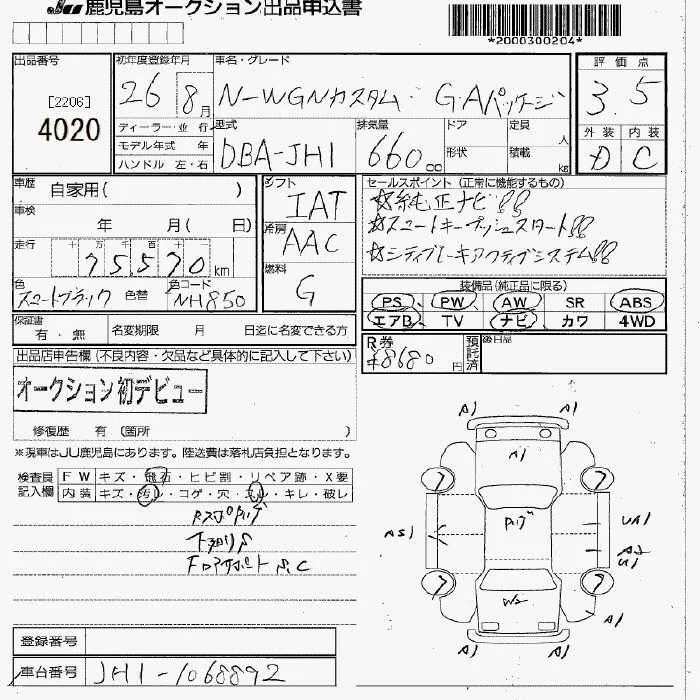 JU 鹿児島オークション出品申込書
*2000300204*
出品番号
[2206]
4020
初年度登録年月
26 8月
車名・グレード
N-WGNカスタム G・Aパッケージ
評価点
3.5
ディーラー・並行
モデル年式 年
ハンドル 左・右
型式
DBA-JH1
排気量
660cc
ドア
形状
定員
人
積載
kg
外装 内装
D C
車歴 自家用( )
車検
年 月( 日)
走行 十 万 千 百 十 一
75,570 km
色
スマートブラック
色替
色コード
NH850
シフト
IAT
冷房
AAC
燃料
G
セールスポイント (正常に機能するもの)
☆純正ナビ!!
☆スマートキープッシュスタート!!
☆シティブレーキアクティブシステム!!
装備品(純正品に限る)
PS PW AW SR ABS
エアB TV ナビ カワ 4WD
保証書
有・無
名変期限 月 日迄に名変できる方
R券
¥8680円
預託済
後日品
出品店申告欄 (不良内容・欠品など具体的に記入して下さい)
オークション初デビュー
修復歴 有 (箇所 )
※現車はJU鹿児島にあります。陸送費は落札店負担となります。
検査員
記入欄
FW キズ・飛石・ヒビ割・リペア跡・X要
内装 キズ・汚れ・コゲ・穴・スレ・キレ・破レ
下廻りS
A1 A1
A1
AS1
UA1
A2
U1
W2
A1
A1 A1
登録番号
車台番号 JH1-1068892